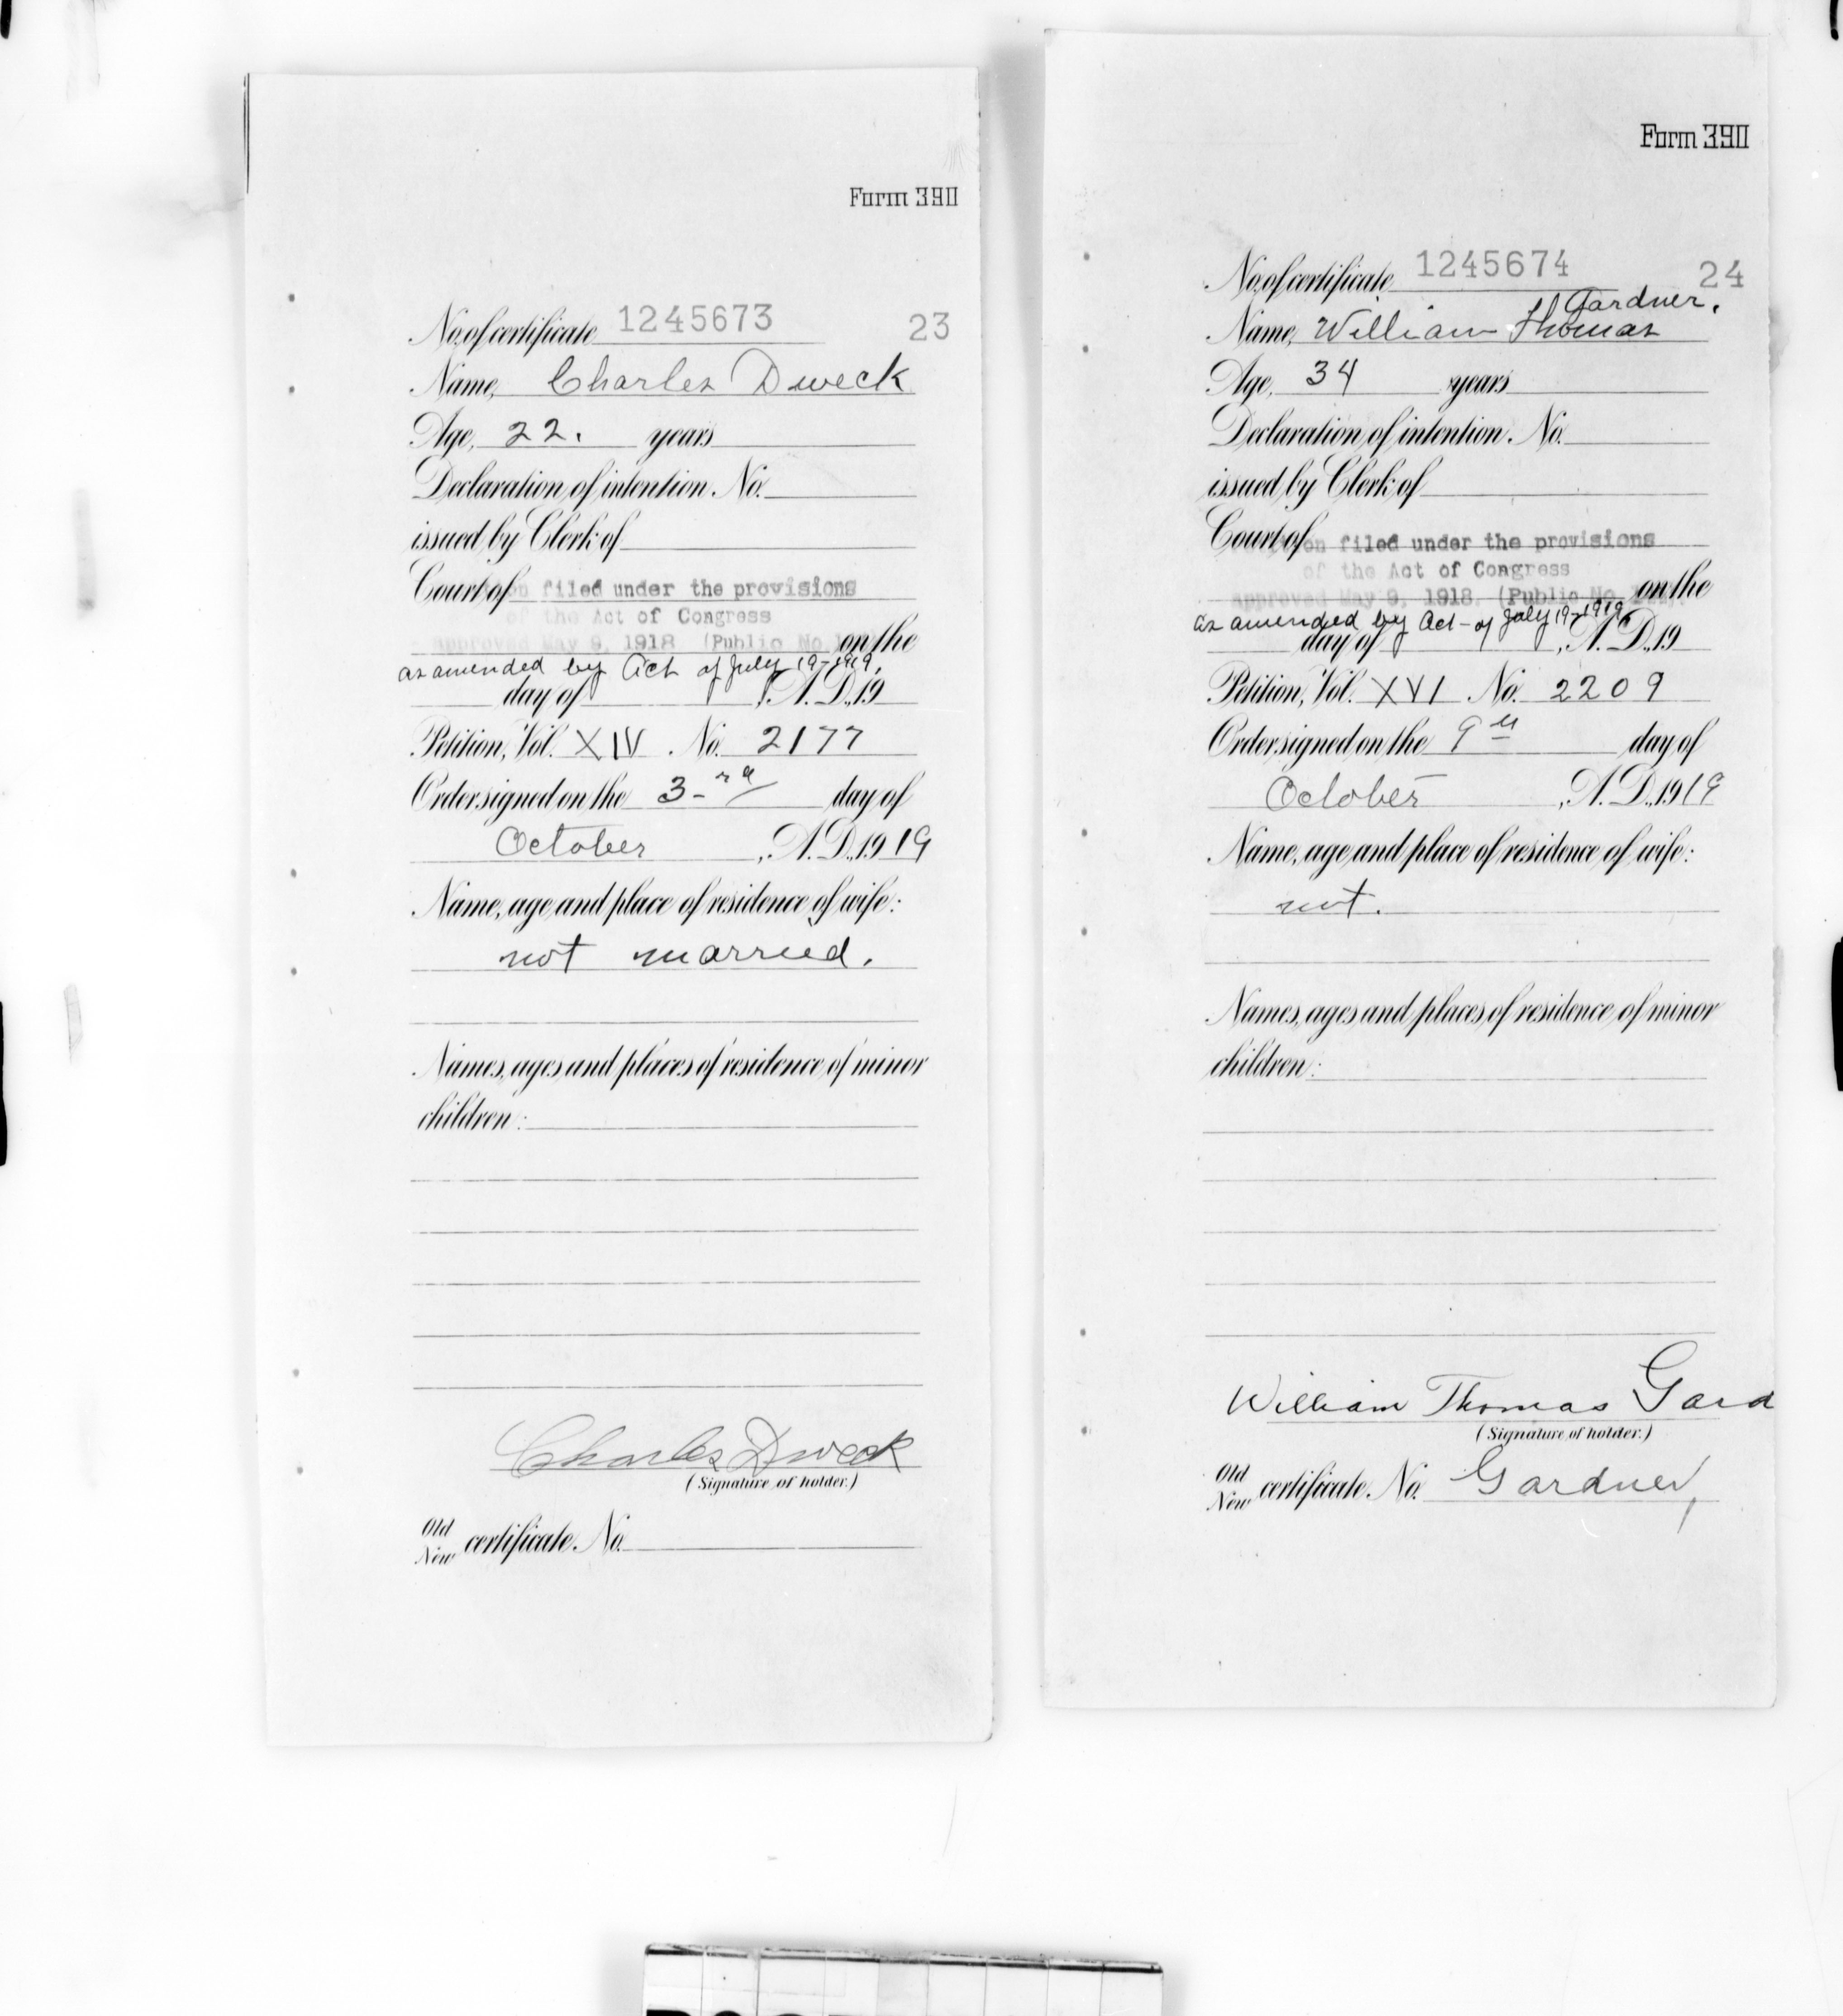 Form 390
No. of certificate 1245673 23
Name, Charles Dweck
Age, 22. years
Declaration of intention. No.
issued by Clerk of
Court of on filed under the provisions
of the Act of Congress
approved May 9, 1918 (Public No. on the
as amended by Act of July 19-1919.
day of , A. D., 19
Petition, Vol. XIV . No. 2177
Order signed on the 3-rd day of
October , A. D., 19 19
Name, age and place of residence of wife:
not married.
Names, ages and places of residence of minor
children:
Charles Dweck
(Signature of holder.)
Old
New certificate. No.
Form 390
No. of certificate 1245674 24
Gardner.
Name, William Thomas
Age, 34 years
Declaration of intention. No.
issued by Clerk of
Court of on filed under the provisions
of the Act of Congress
approved May 9, 1918, (Public No on the
as amended by Act of July 19-1919
day of , A. D., 19
Petition, Vol. XVI No. 2209
Order signed on the 9th day of
October , A. D., 1919
Name, age and place of residence of wife:
not.
Names, ages and places of residence of minor
children:
William Thomas Gard
(Signature of holder.)
Old
New certificate. No. Gardner